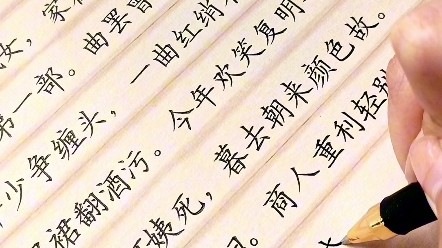 女，家
第一部。曲罢曾
少争缠头，一曲红绡
裙翻酒污。今年欢笑复明
姨死，暮去朝来颜色故。
商人重利轻别